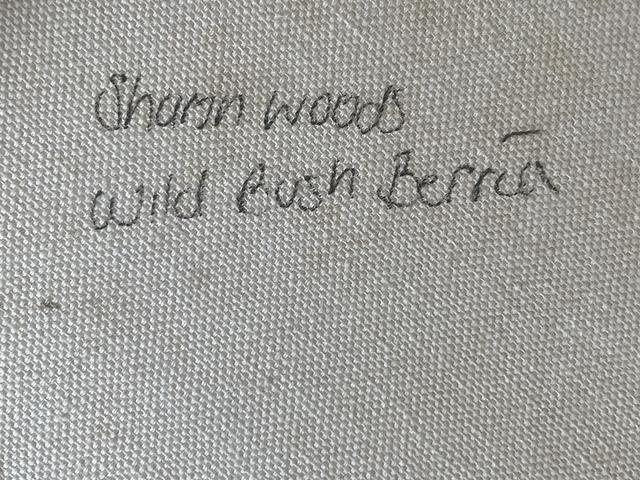 Sharon woods
Wild Bush Berries